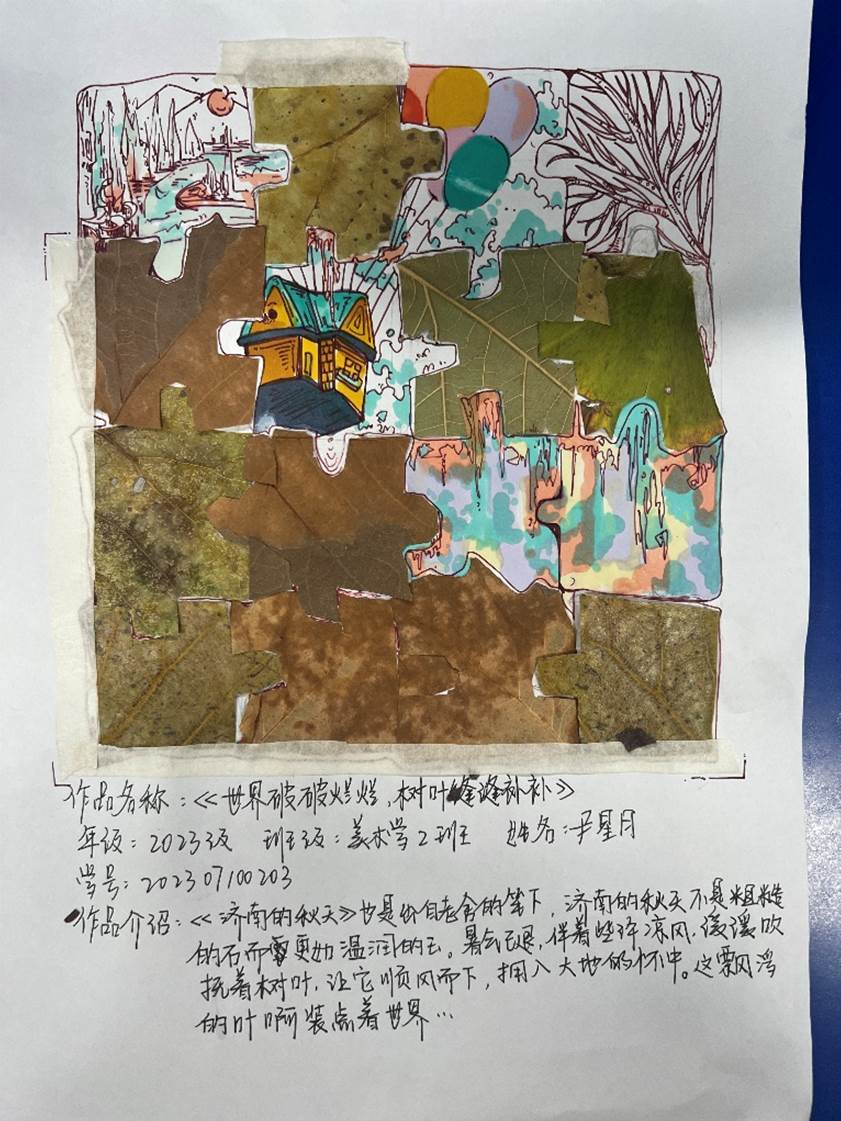 作品名称：《世界破破烂烂，树叶缝缝补补》
年级：2023级 班级：美术学2班 姓名：尹星月
学号：202307100203
作品介绍：《济南的秋天》也是出自老舍的笔下，济南的秋天不是粗糙
的石而更如温润的玉。暑气已退，伴着些许凉风，缓缓吹
抚着树叶，让它顺风而下，拥入大地的怀中。这飘浮
的叶啊装点着世界…